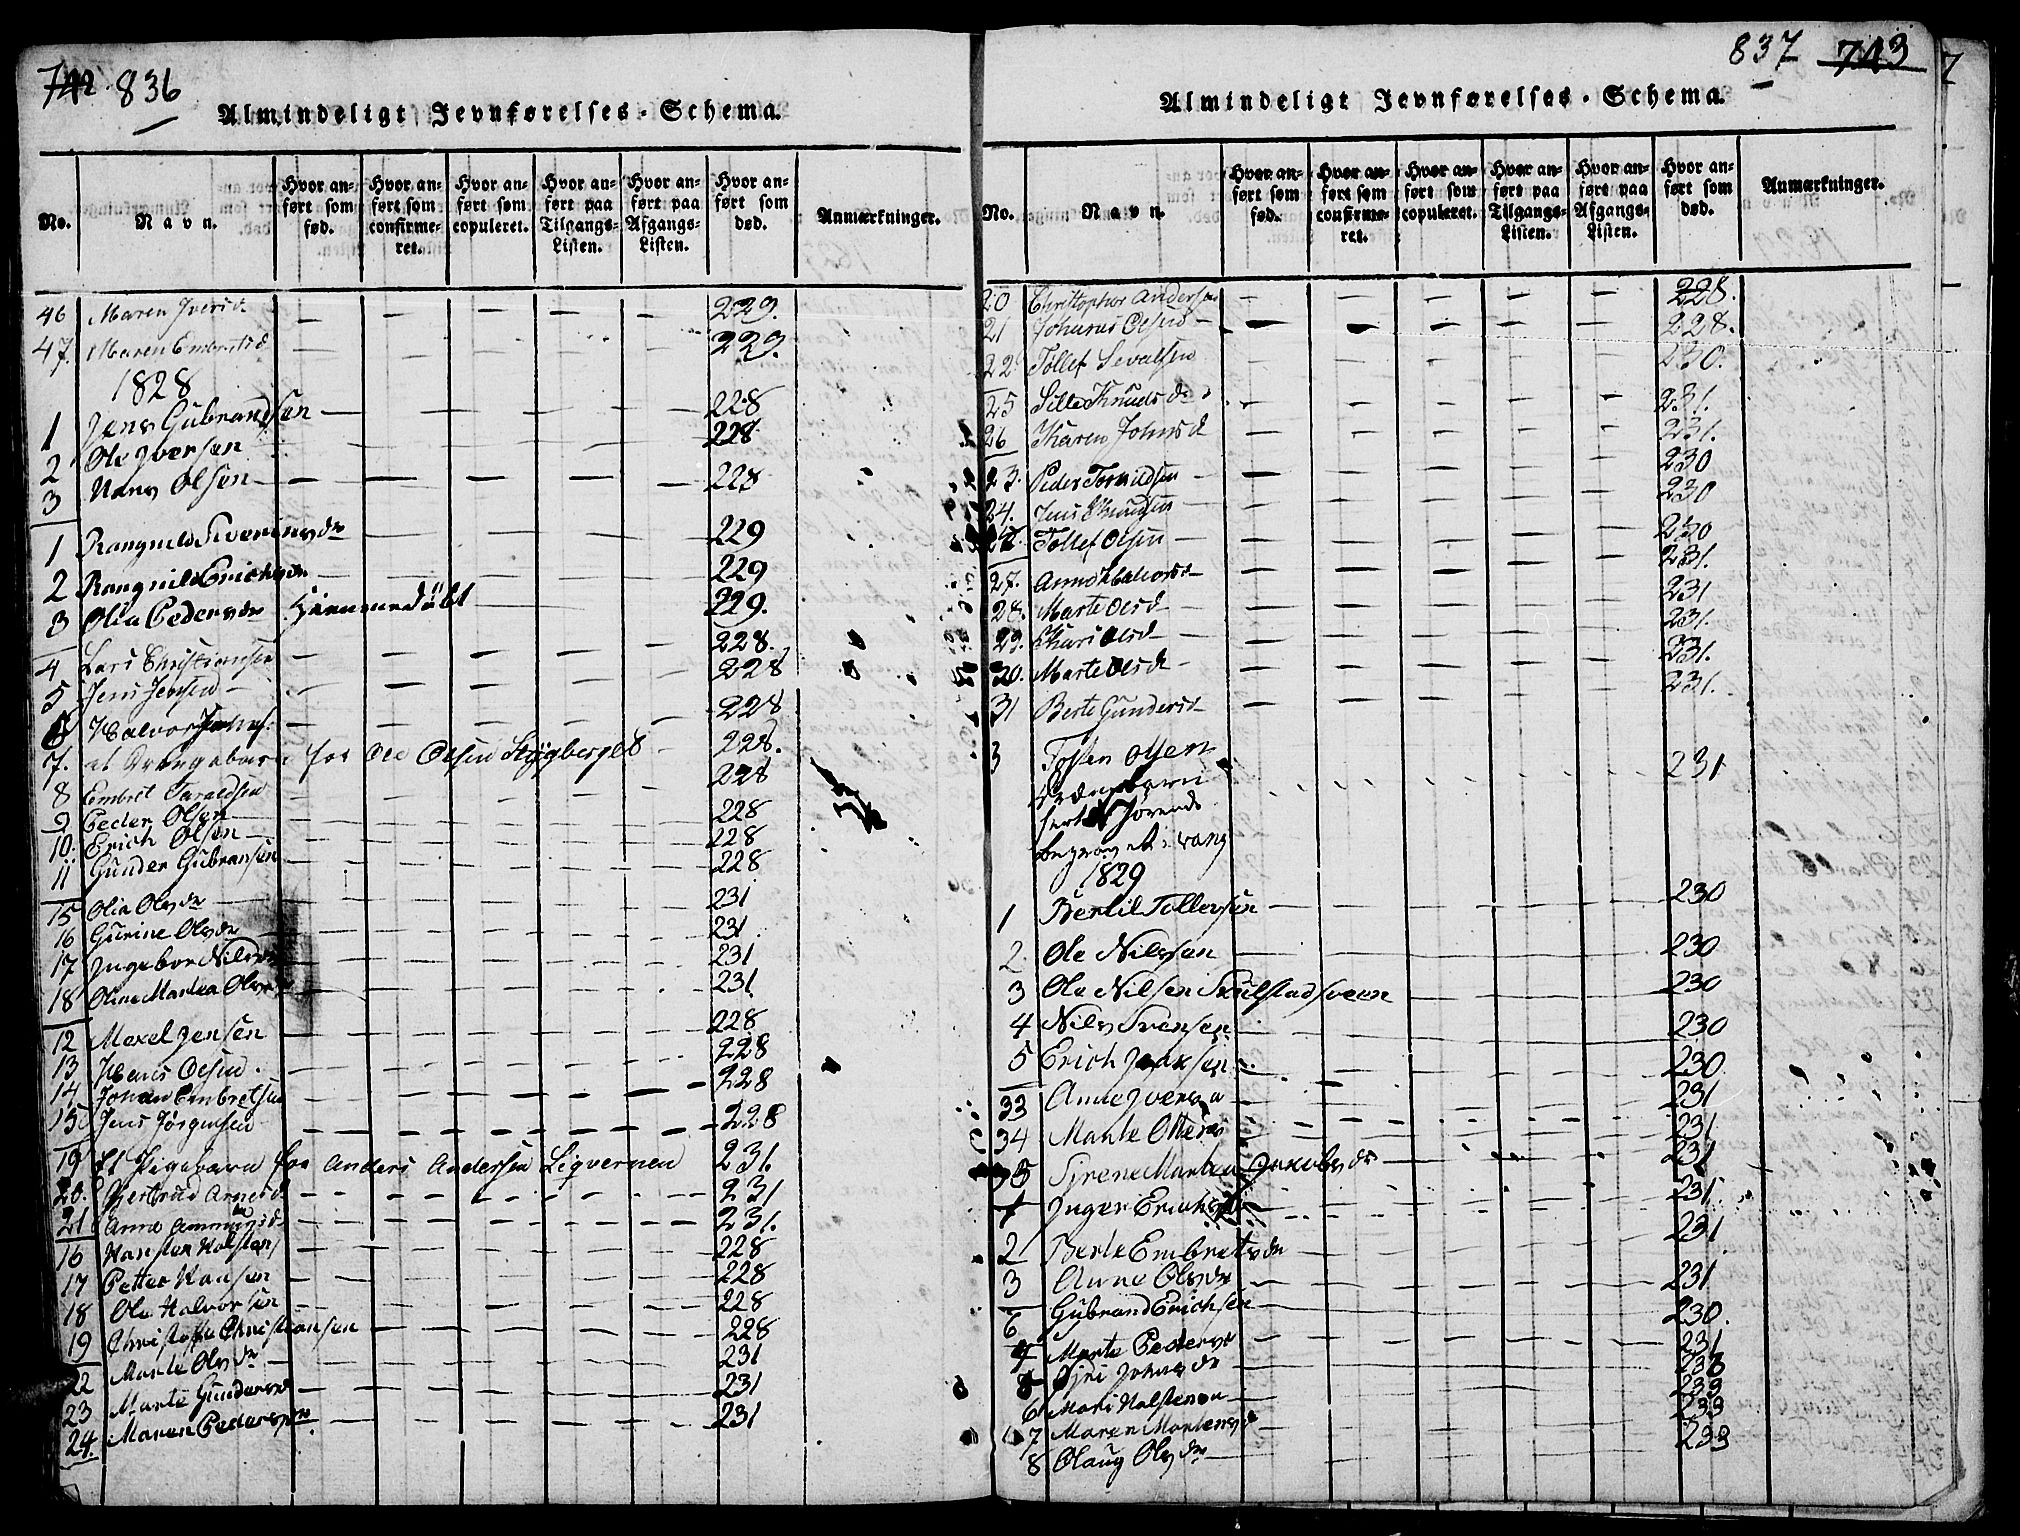 742 836
Almindeligt Jevnførelses-Schema.
No.
Navn.
Hvor anført som fød.
Hvor anført som confirmeret.
Hvor anført som copuleret.
Hvor anført paa Tilgangs-Listen.
Hvor anført paa Afgangs-Listen.
Hvor anført som død.
Anmærkninger.
46 Maren Iversd. 229.
47. Maren Embretsd 229.
1828
1 Jens Gubrandsen 228
2 Ole Iversen 228
3 Hans Olsen 228
1 229
2 Rangnild Erichsdr 229
3 Olia Pedersdr Hiemmedøbt 229.
4 Lars Christiansen 228.
5 Jens Jensen 228
6 Halvor Johns. 228
7. et Drengebarn for Ole Olsen Stygberget 228.
8 Embret Taraldsen 228
9 Peder Olsen 228
10. Erich Olsen 228
11 Gunder Gubransen 228
15 Olia Olsdr 231
16 Gurine Olsdr 231
17 Ingebor Nilsdr 231
18 Oline Martea Olsdr 231.
12 Mexel Jensen 228
13 Hans Olsen. 228
14 Johan Embretsen 228
15 Jens Jørgensen 228
19 Et Pigebarn for Anders Andersen Ligvernen 231.
20. Gjertrud Arnesd 231
21 Anne Ammundsd 231.
16 Hansten Halstens 228
17 Petter Hansen 228
18 Ole Halvorsen 228
19 Christoffe Christiansen 228
22 Marte Olsdr 231
23 Marte Gundersd 231
24. Maren Pedersdr 231
837 743
Almindeligt Jevnførelses-Schema.
No.
Navn.
Hvor anført som fød.
Hvor anført som confirmeret.
Hvor anført som copuleret.
Hvor anført paa Tilgangs-Listen.
Hvor anført paa Afgangs-Listen.
Hvor anført som død.
Anmærkninger.
20 Christopher Andersen 228.
21 Johanes Olsen 228.
22 Tollef Sevalsen 230.
25 Sille Knudsdr 231.
26 Karen Johnsd 231.
23. Peder Torkildsen 230
24. Jens Knudsen 230
Tollef Olsen 230
27. Anne Halvorsd 231.
28. Marte Olsd 231
29. Kari Olsd 231.
30. Marte Olsd 231.
31 Berte Gundersd 231.
3 Tosten Olsen 231
begravet i vang
1829
1 Bertil Tollevsen 230
2. Ole Nilssen 230
3 Ole Nilsen Skulstadsveen 230
4 Nils Svensen 230
5 Erich Isaksen 230.
33 Anne Iversd 231
34 Marte Ottersd 231
35 Sirene Martea Jakobsdr 231
1 Inger Erichsd 231.
2 Berte Embretsdr 231
3 Anne Olsdr 231
6 Gubrand Erichsen 230.
Marte Pedersd 231
Siri Johnsdr 233
6 Mari Halstensd 233
7 Maren Mortensd 233
8 Olaug Olsdr 233